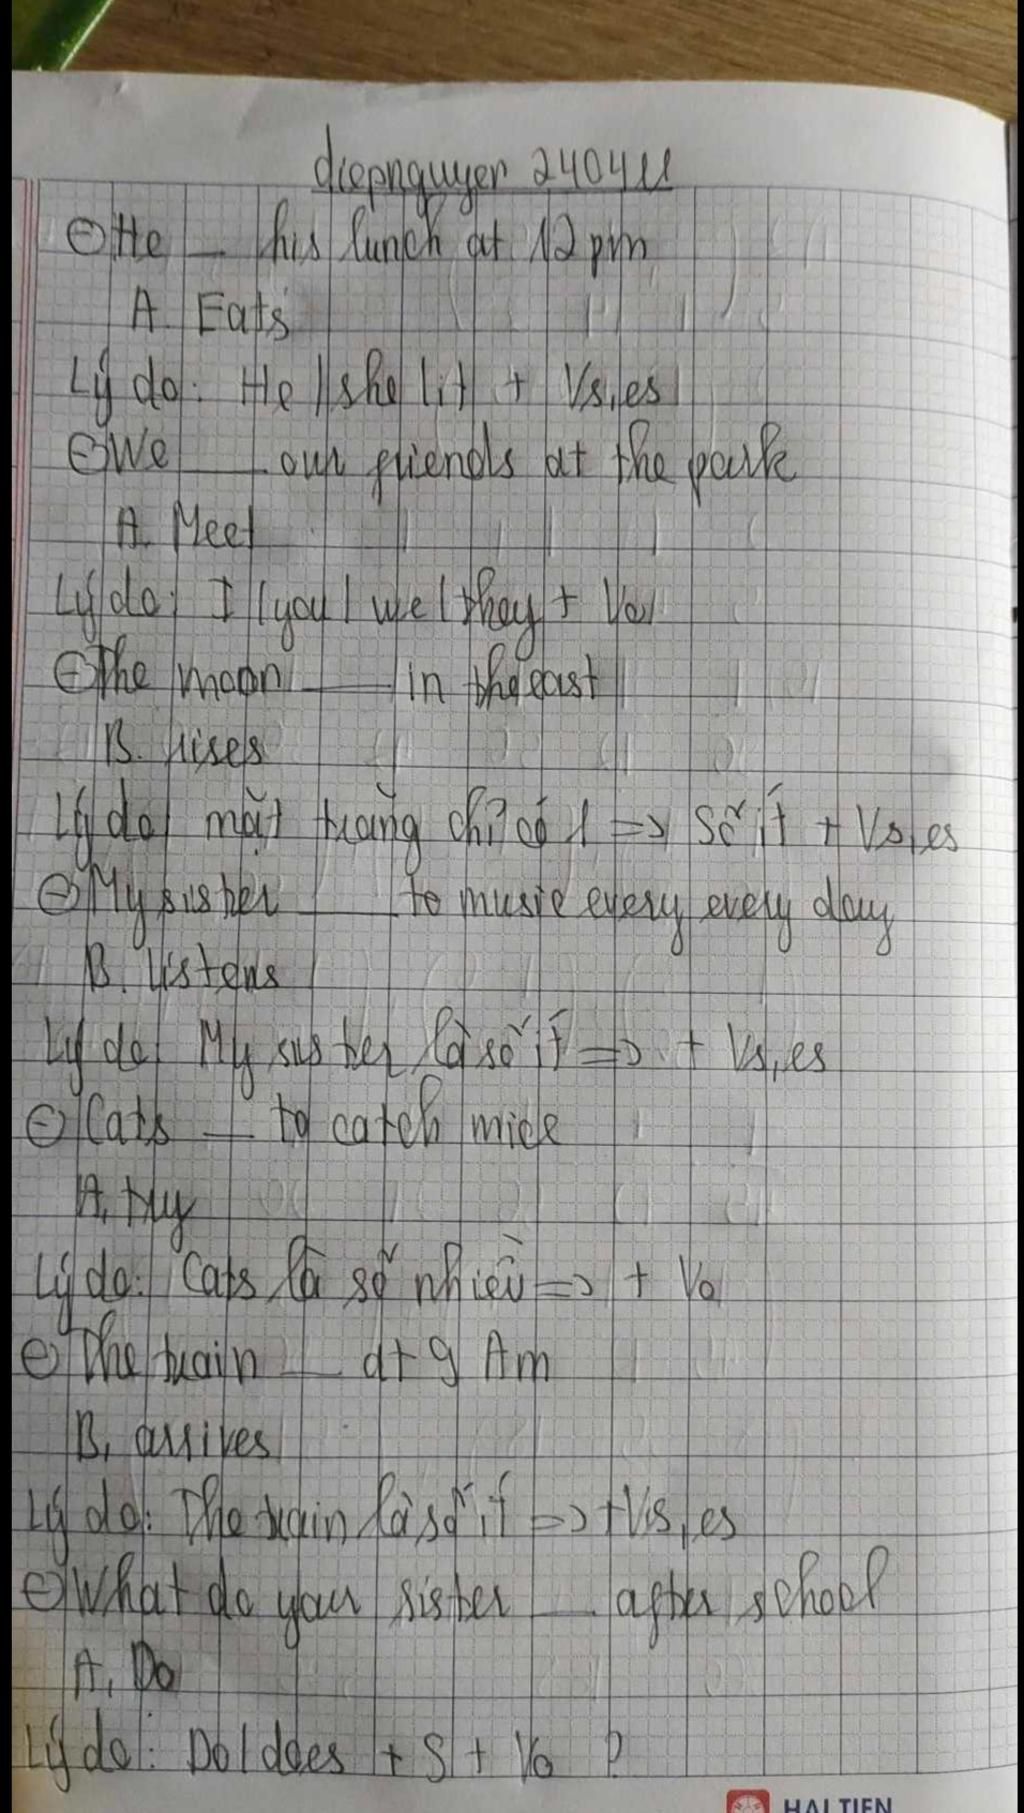 diepnguyen 240411
⊖ He __ his lunch at 12 pm
A. Eats
Lý do: He / she / it + Vs,es
⊖ We __ our friends at the park
A. Meet
Lý do: I / you / we / they + Vo
⊖ The moon __ in the east
B. rises
Lý do: mặt trăng chỉ có 1 => Số ít + Vs,es
⊖ My sister __ to music every every day
B. listens
Lý do: My sister là số ít => + Vs,es
⊖ Cats __ to catch mice
A. try
Lý do: Cats là số nhiều => + Vo
⊖ The train __ at 9 Am
B. arrives
Lý do: The train là số ít => + Vs,es
⊖ What do your sister __ after school
A. Do
Lý do: Do / does + S + Vo ?
HẢI TIẾN